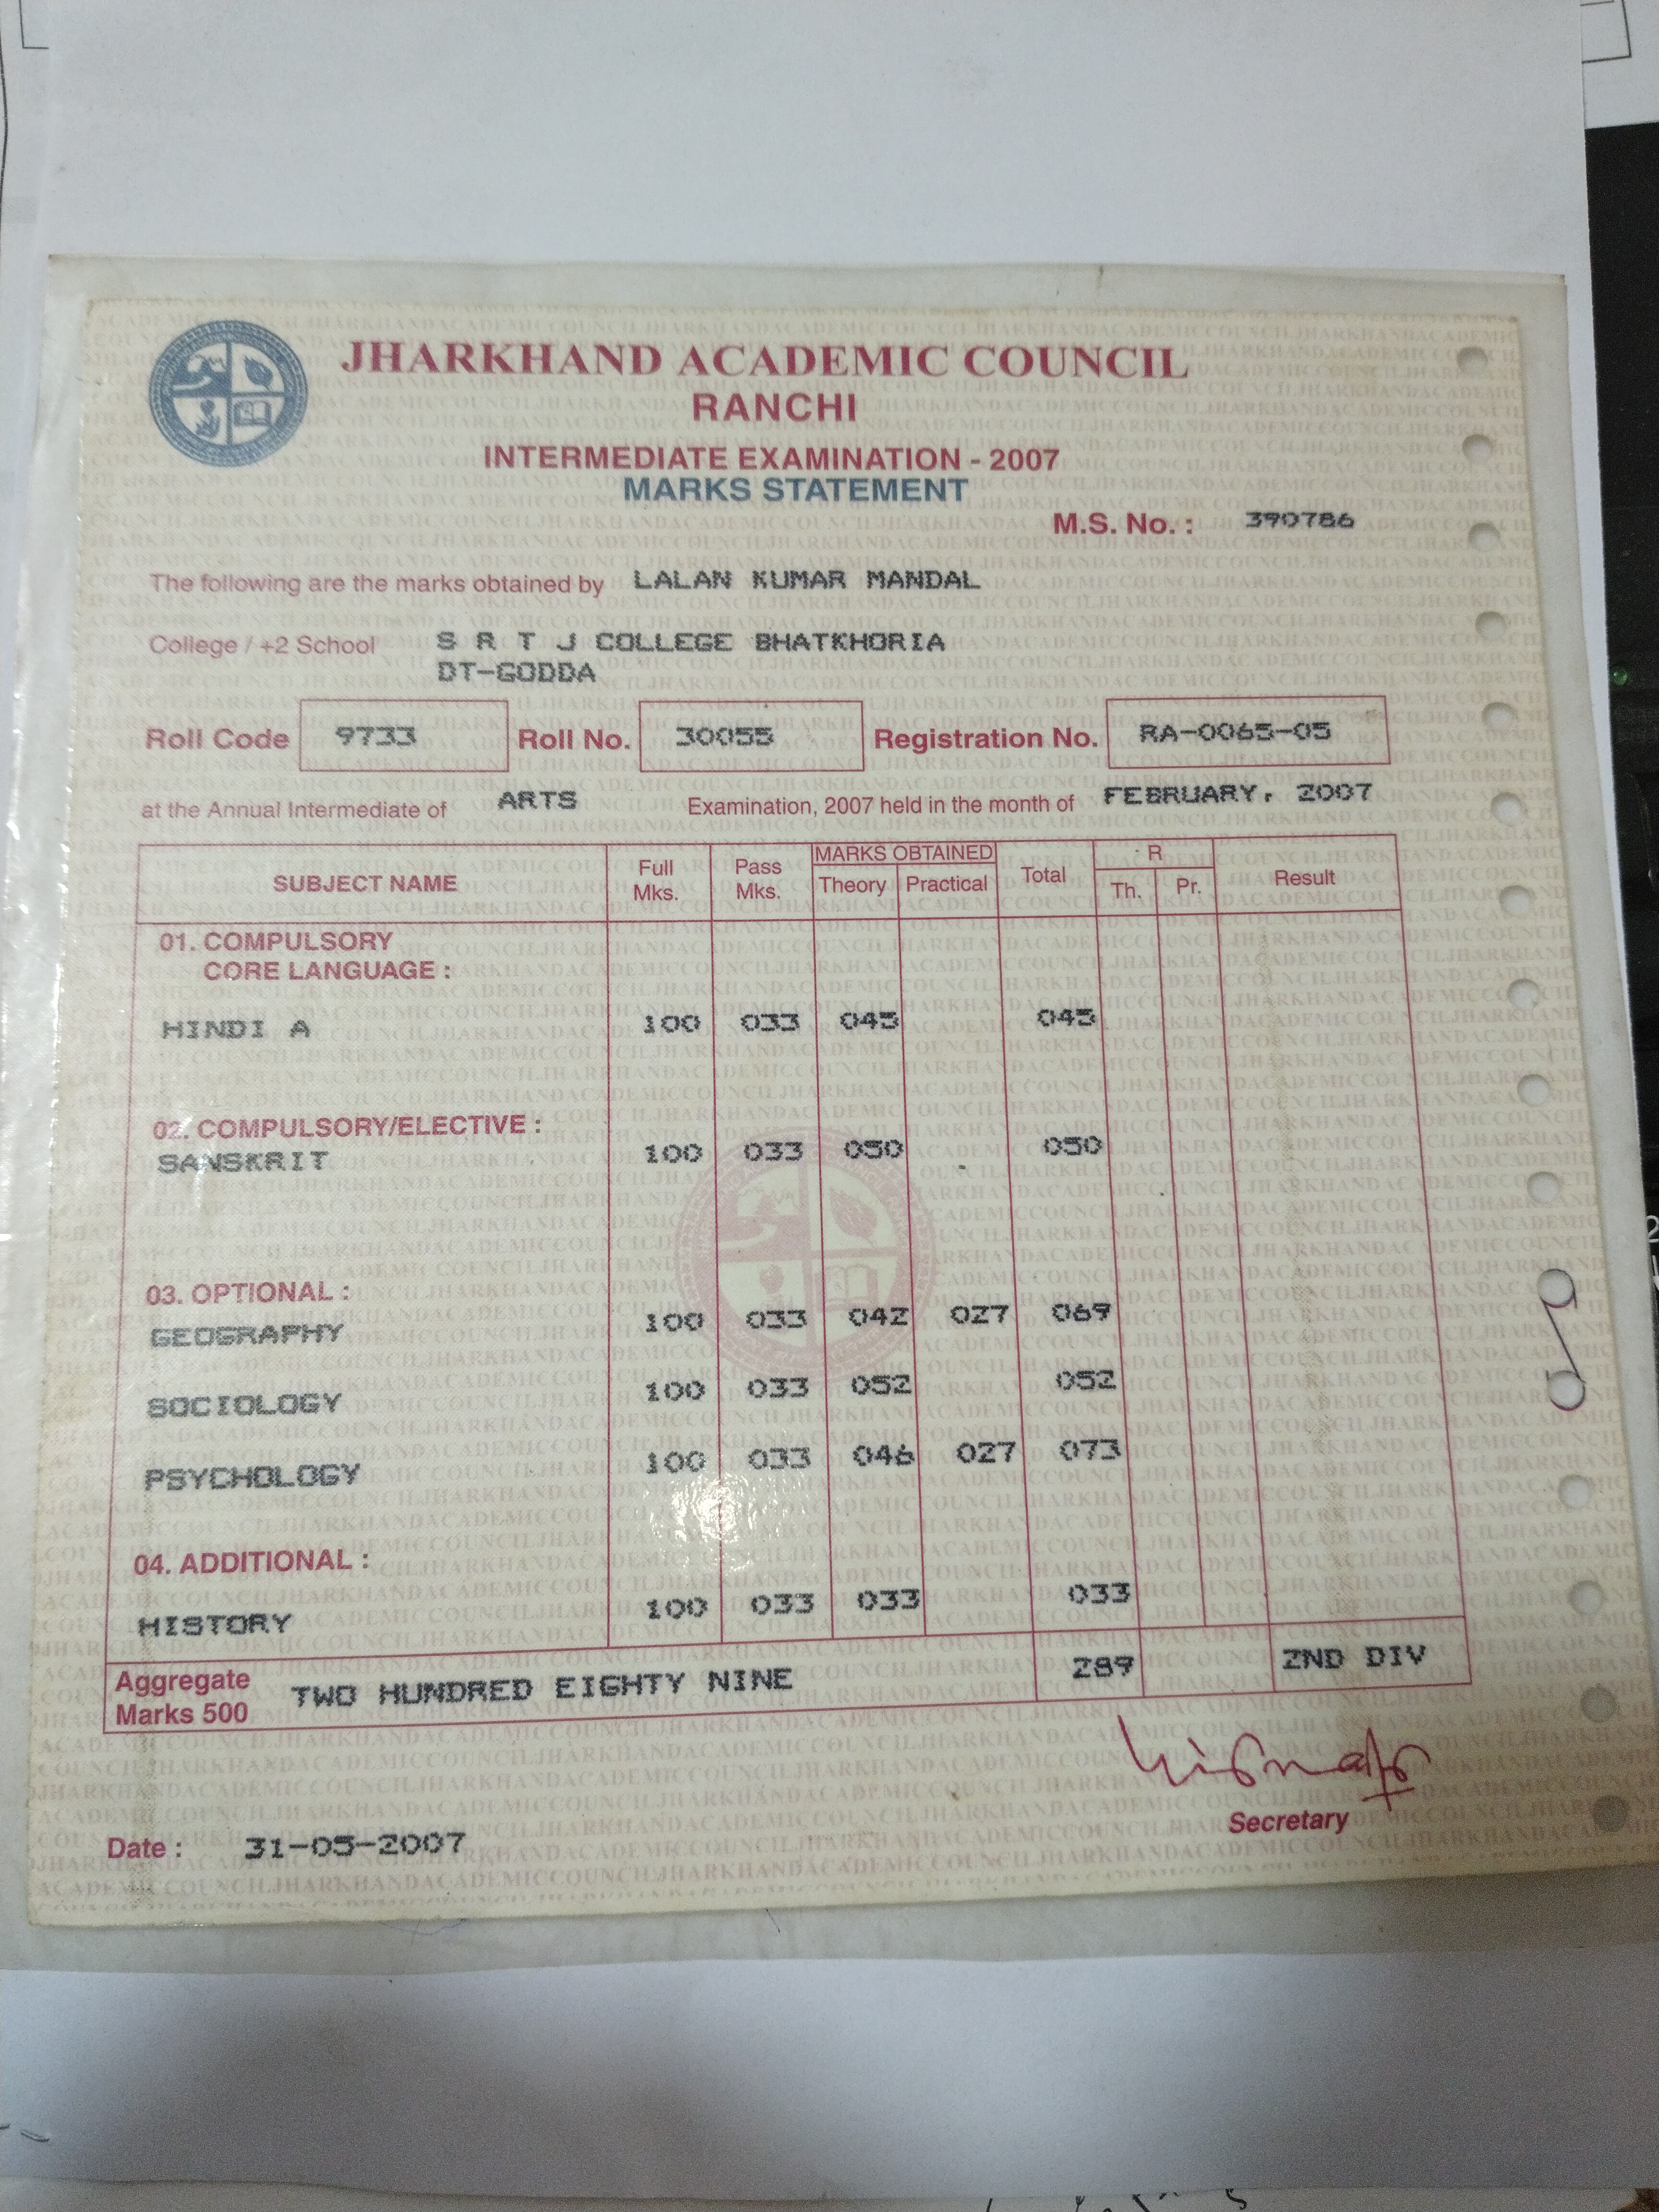 JHARKHAND ACADEMIC COUNCIL
RANCHI
INTERMEDIATE EXAMINATION - 2007
MARKS STATEMENT
M.S. No. : 390786
The following are the marks obtained by LALAN KUMAR MANDAL
College / +2 School S R T J COLLEGE BHATKHORIA
DT-GODDA
Roll Code 9733 Roll No. 30055 Registration No. RA-0065-05
at the Annual Intermediate of ARTS Examination, 2007 held in the month of FEBRUARY, 2007
SUBJECT NAME Full Mks. Pass Mks. MARKS OBTAINED Theory Practical Total R Th. Pr. Result
01. COMPULSORY
CORE LANGUAGE :
HINDI A 100 033 045 045
02. COMPULSORY/ELECTIVE :
SANSKRIT 100 033 050 050
03. OPTIONAL :
GEOGRAPHY 100 033 042 027 069
SOCIOLOGY 100 033 052 052
PSYCHOLOGY 100 033 046 027 073
04. ADDITIONAL :
HISTORY 100 033 033 033
Aggregate Marks 500 TWO HUNDRED EIGHTY NINE 289 2ND DIV
Secretary
Date : 31-05-2007